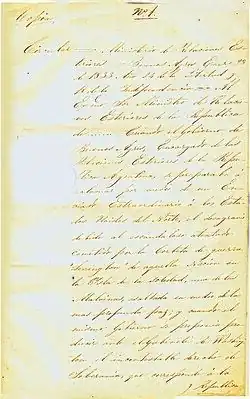 Copia Nº 1.
Circular Ministerio de Relaciones Exte
riores Buenos Ayres Enero
de 1833. Año 24 de la Libertad y
18 de la Independencia Al
Exmo Sor Ministro de Relacio
nes Exteriores de la Republica
de Cuando el Gobierno de
Buenos Ayres, Encargado de las
Relaciones Exteriores de la Repu
blica Argentina, se preparaba á
reclamar por medio de un En
viado Extraordinario á los Esta
dos Unidos del Norte, el desagravio
debido al escandaloso atentado
cometido por la Corbeta de guerra
Lexington de aquella Nacion en
la Isla de la Soledad, una de las
Malvinas, asaltada en medio de la
mas profunda paz, y cuando el
mismo Gobierno se proponia pro
ducir ante el Gabinete de Washing
ton el incontestable derecho de
Soberania, que corresponde á la
Republica